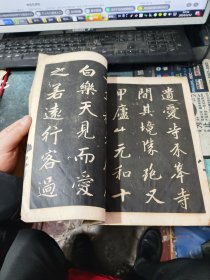 遺愛寺介峯寺
間其境勝絶又
甲廬山元和十
白樂天見而愛
之若遠行客過